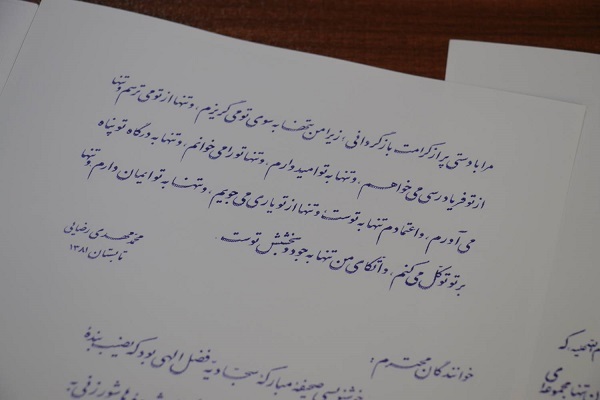 مرا با دستی پر از کرامت بازگردانی، زیرا من تنها به سوی تو می گریزم، و تنها از تو می ترسم و تنها
از تو فریادرسی می خواهم، و تنها به تو امید دارم، و تنها تو را می خوانم، و تنها به درگاه تو پناه
می آورم، و اعتمادم تنها به توست؛ و تنها از تو یاری می جویم، و تنها به تو ایمان دارم و تنها
بر تو توکّل می کنم، و اتّکای من تنها به جود و بخشش توست.
محمّد مهدی رضایی
تابستان ۱۳۸۱
خوانندگان محترم؛
خوشنویسی صحیفهٔ مبارکهٔ سجّادیه فضل الهی بود که نصیب بندهٔ